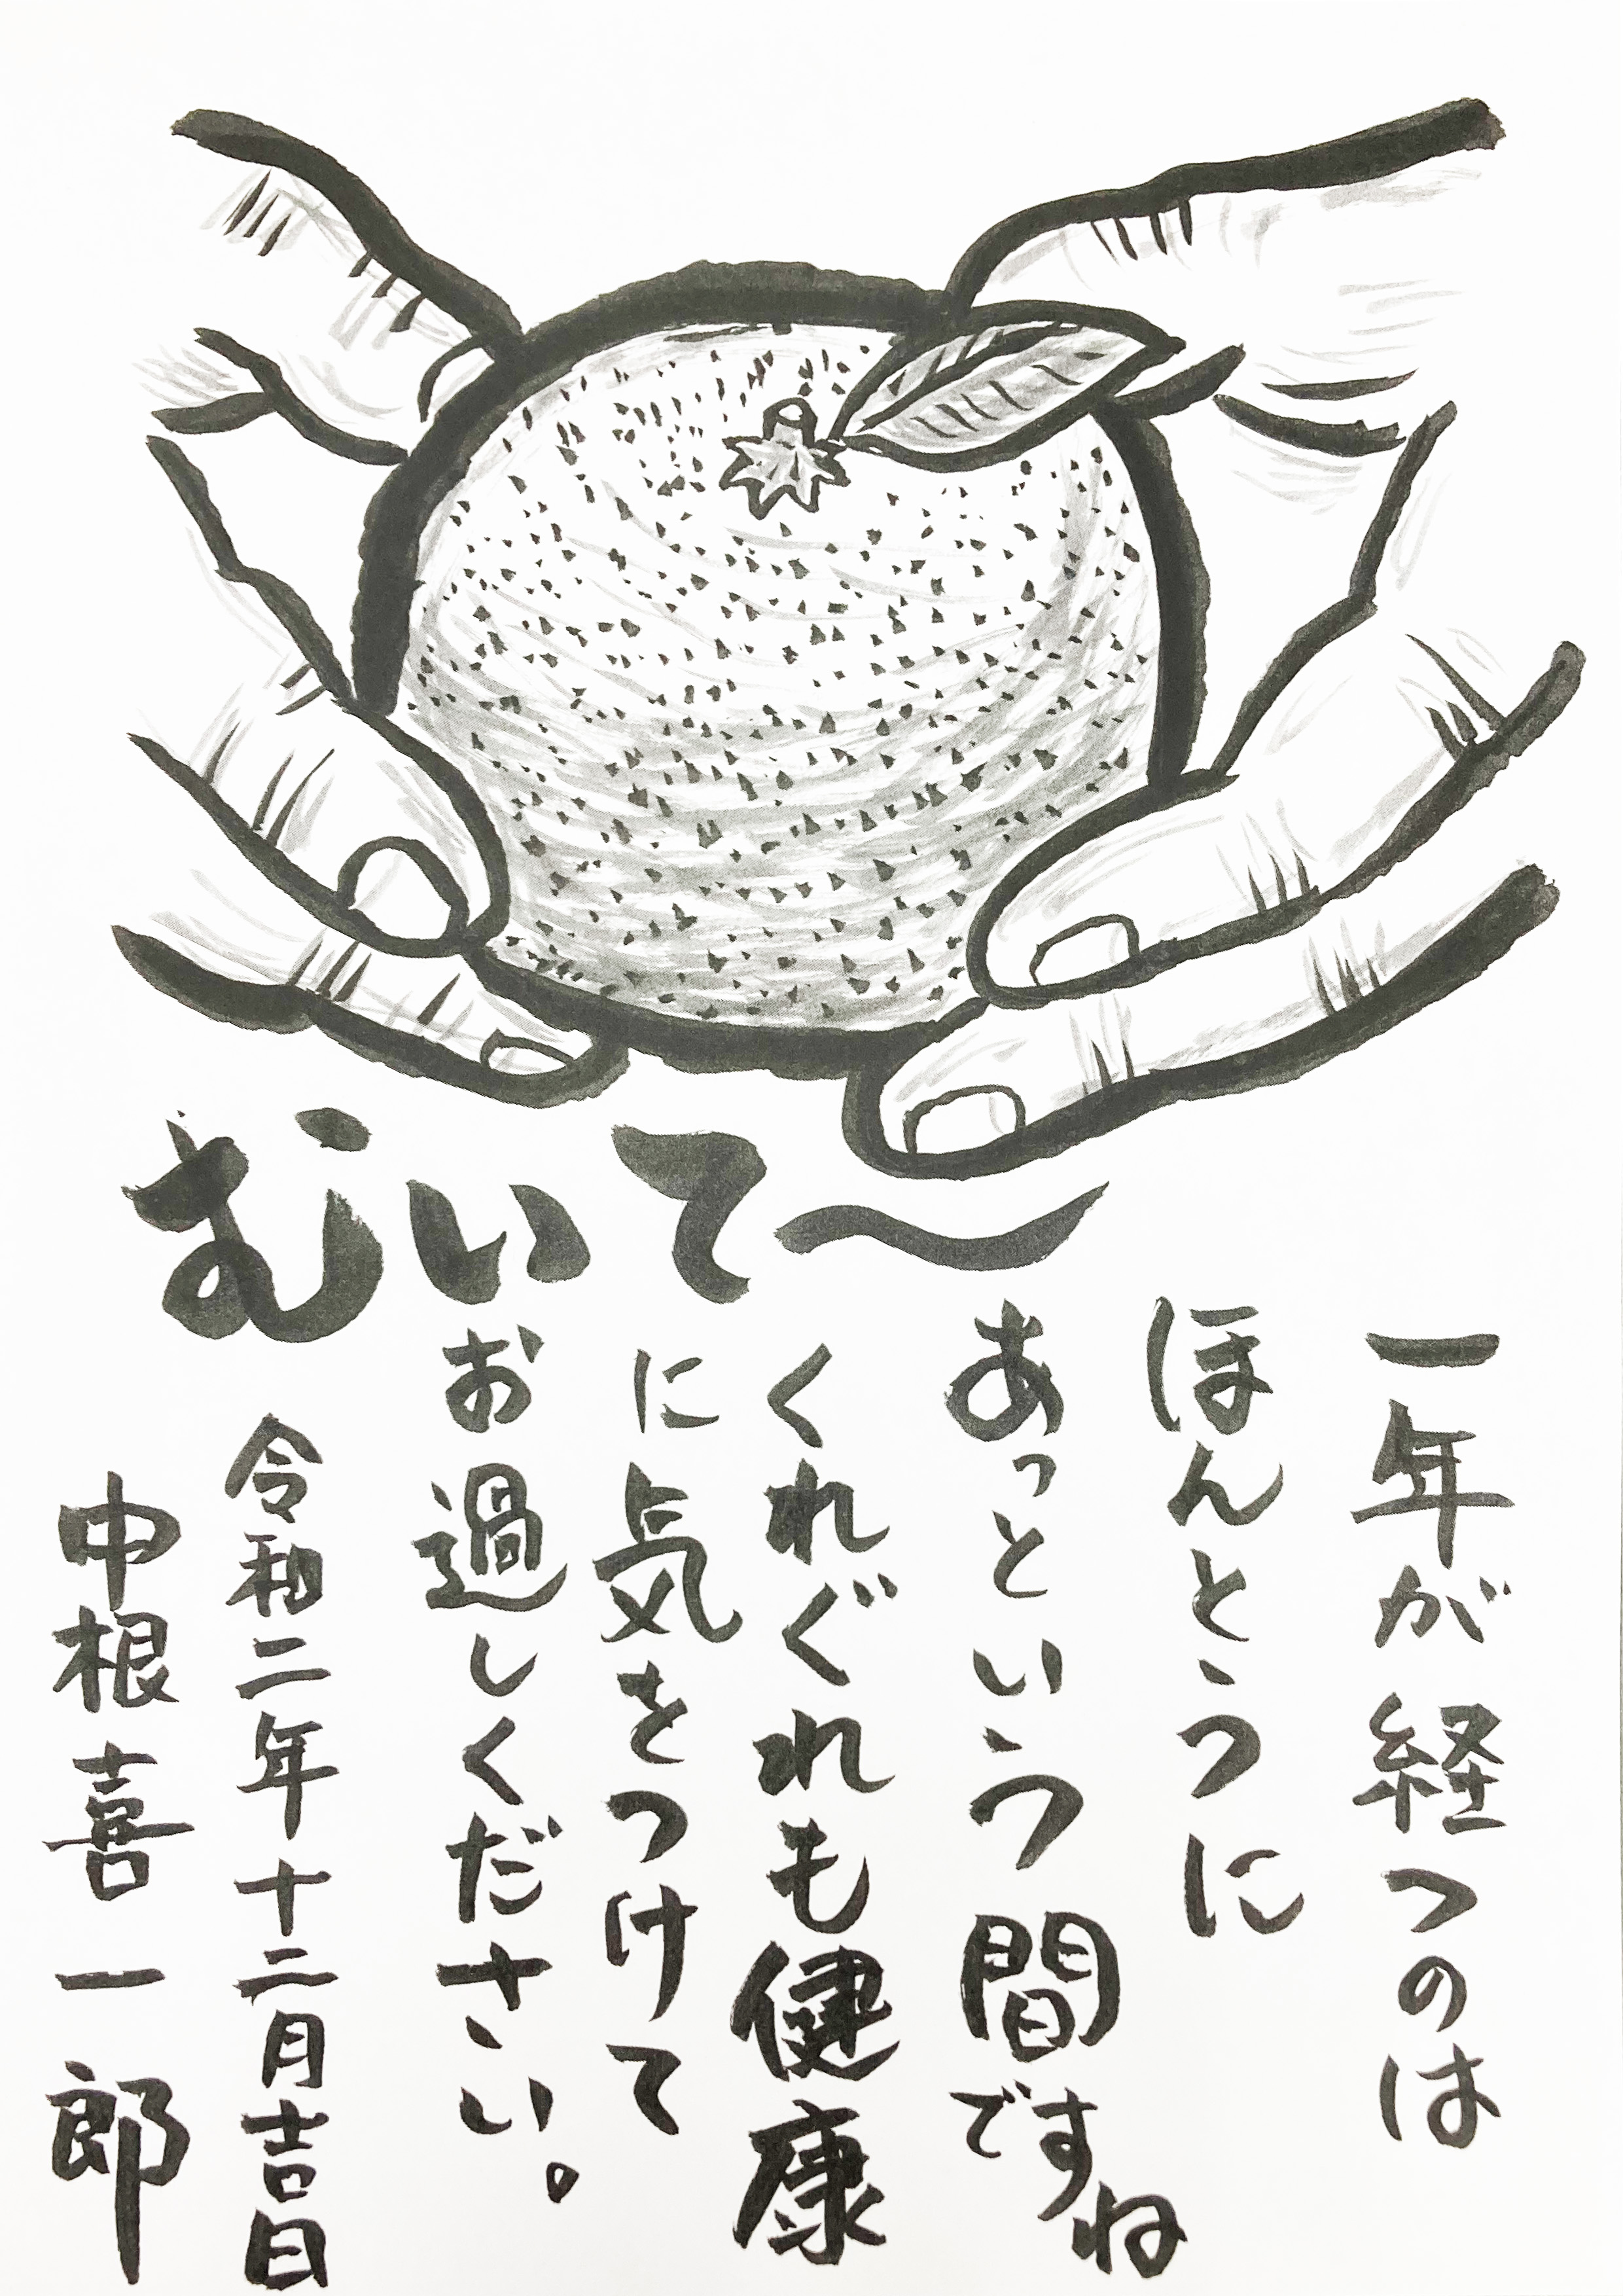 むいて〜
一年が経つのは
ほんとうに
あっという間ですね
くれぐれも健康
に気をつけて
お過しください。
令和二年十二月吉日
中根喜一郎